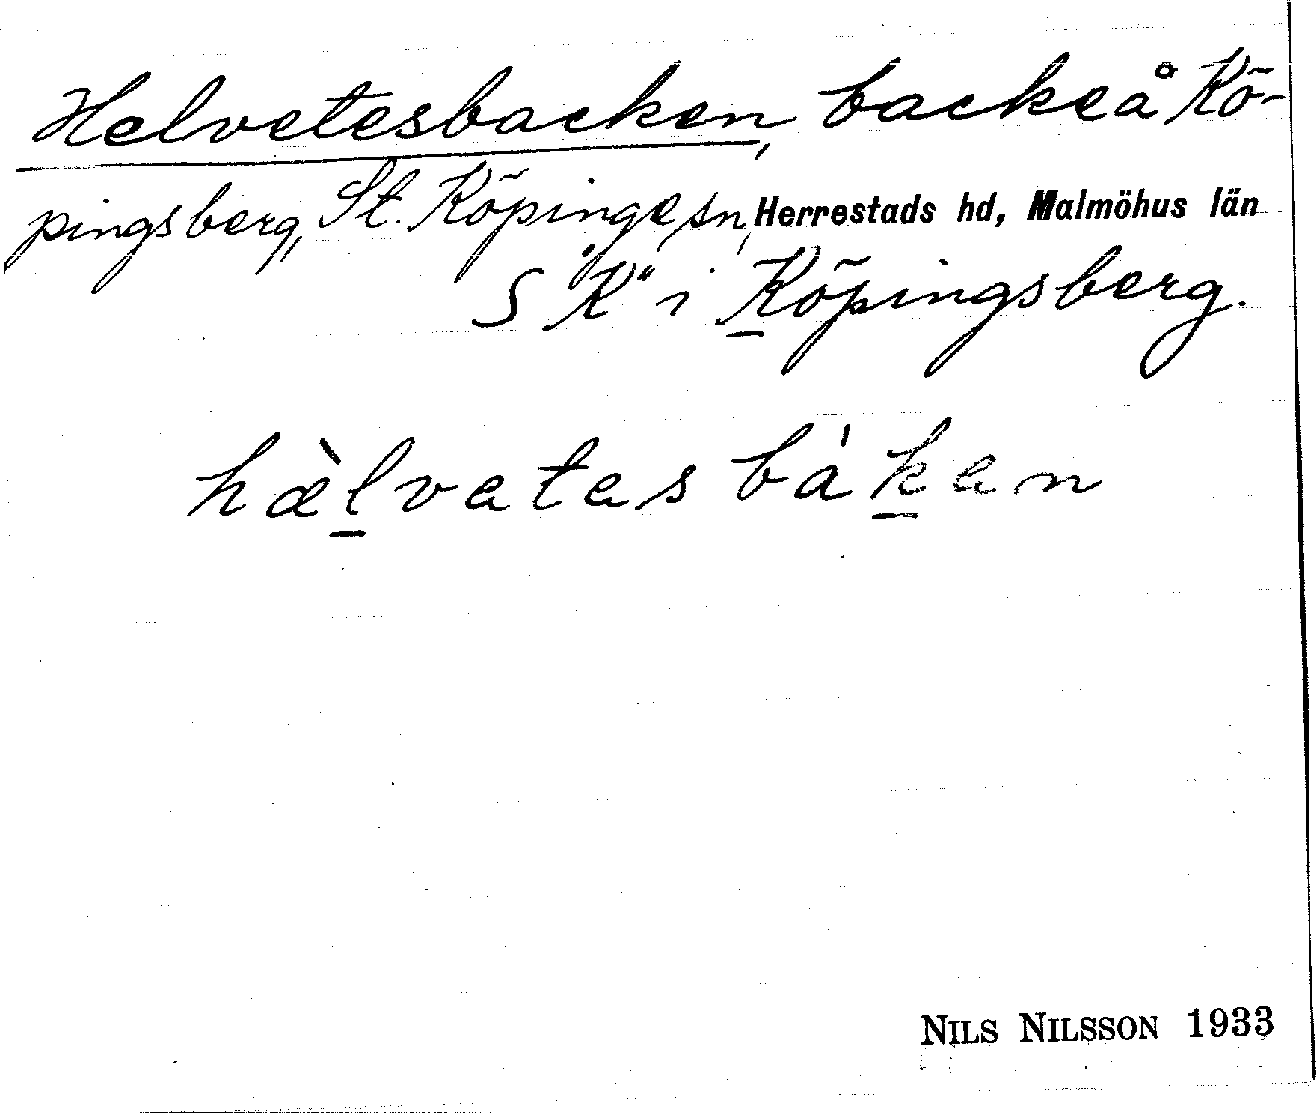 Helvetesbacken, backe å Kö-
pingsberg, St. Köpinge sn, Herrestads hd, Malmöhus län
S "K" i Köpingsberg.
hæ̀lvatas bákan
NILS NILSSON 1933